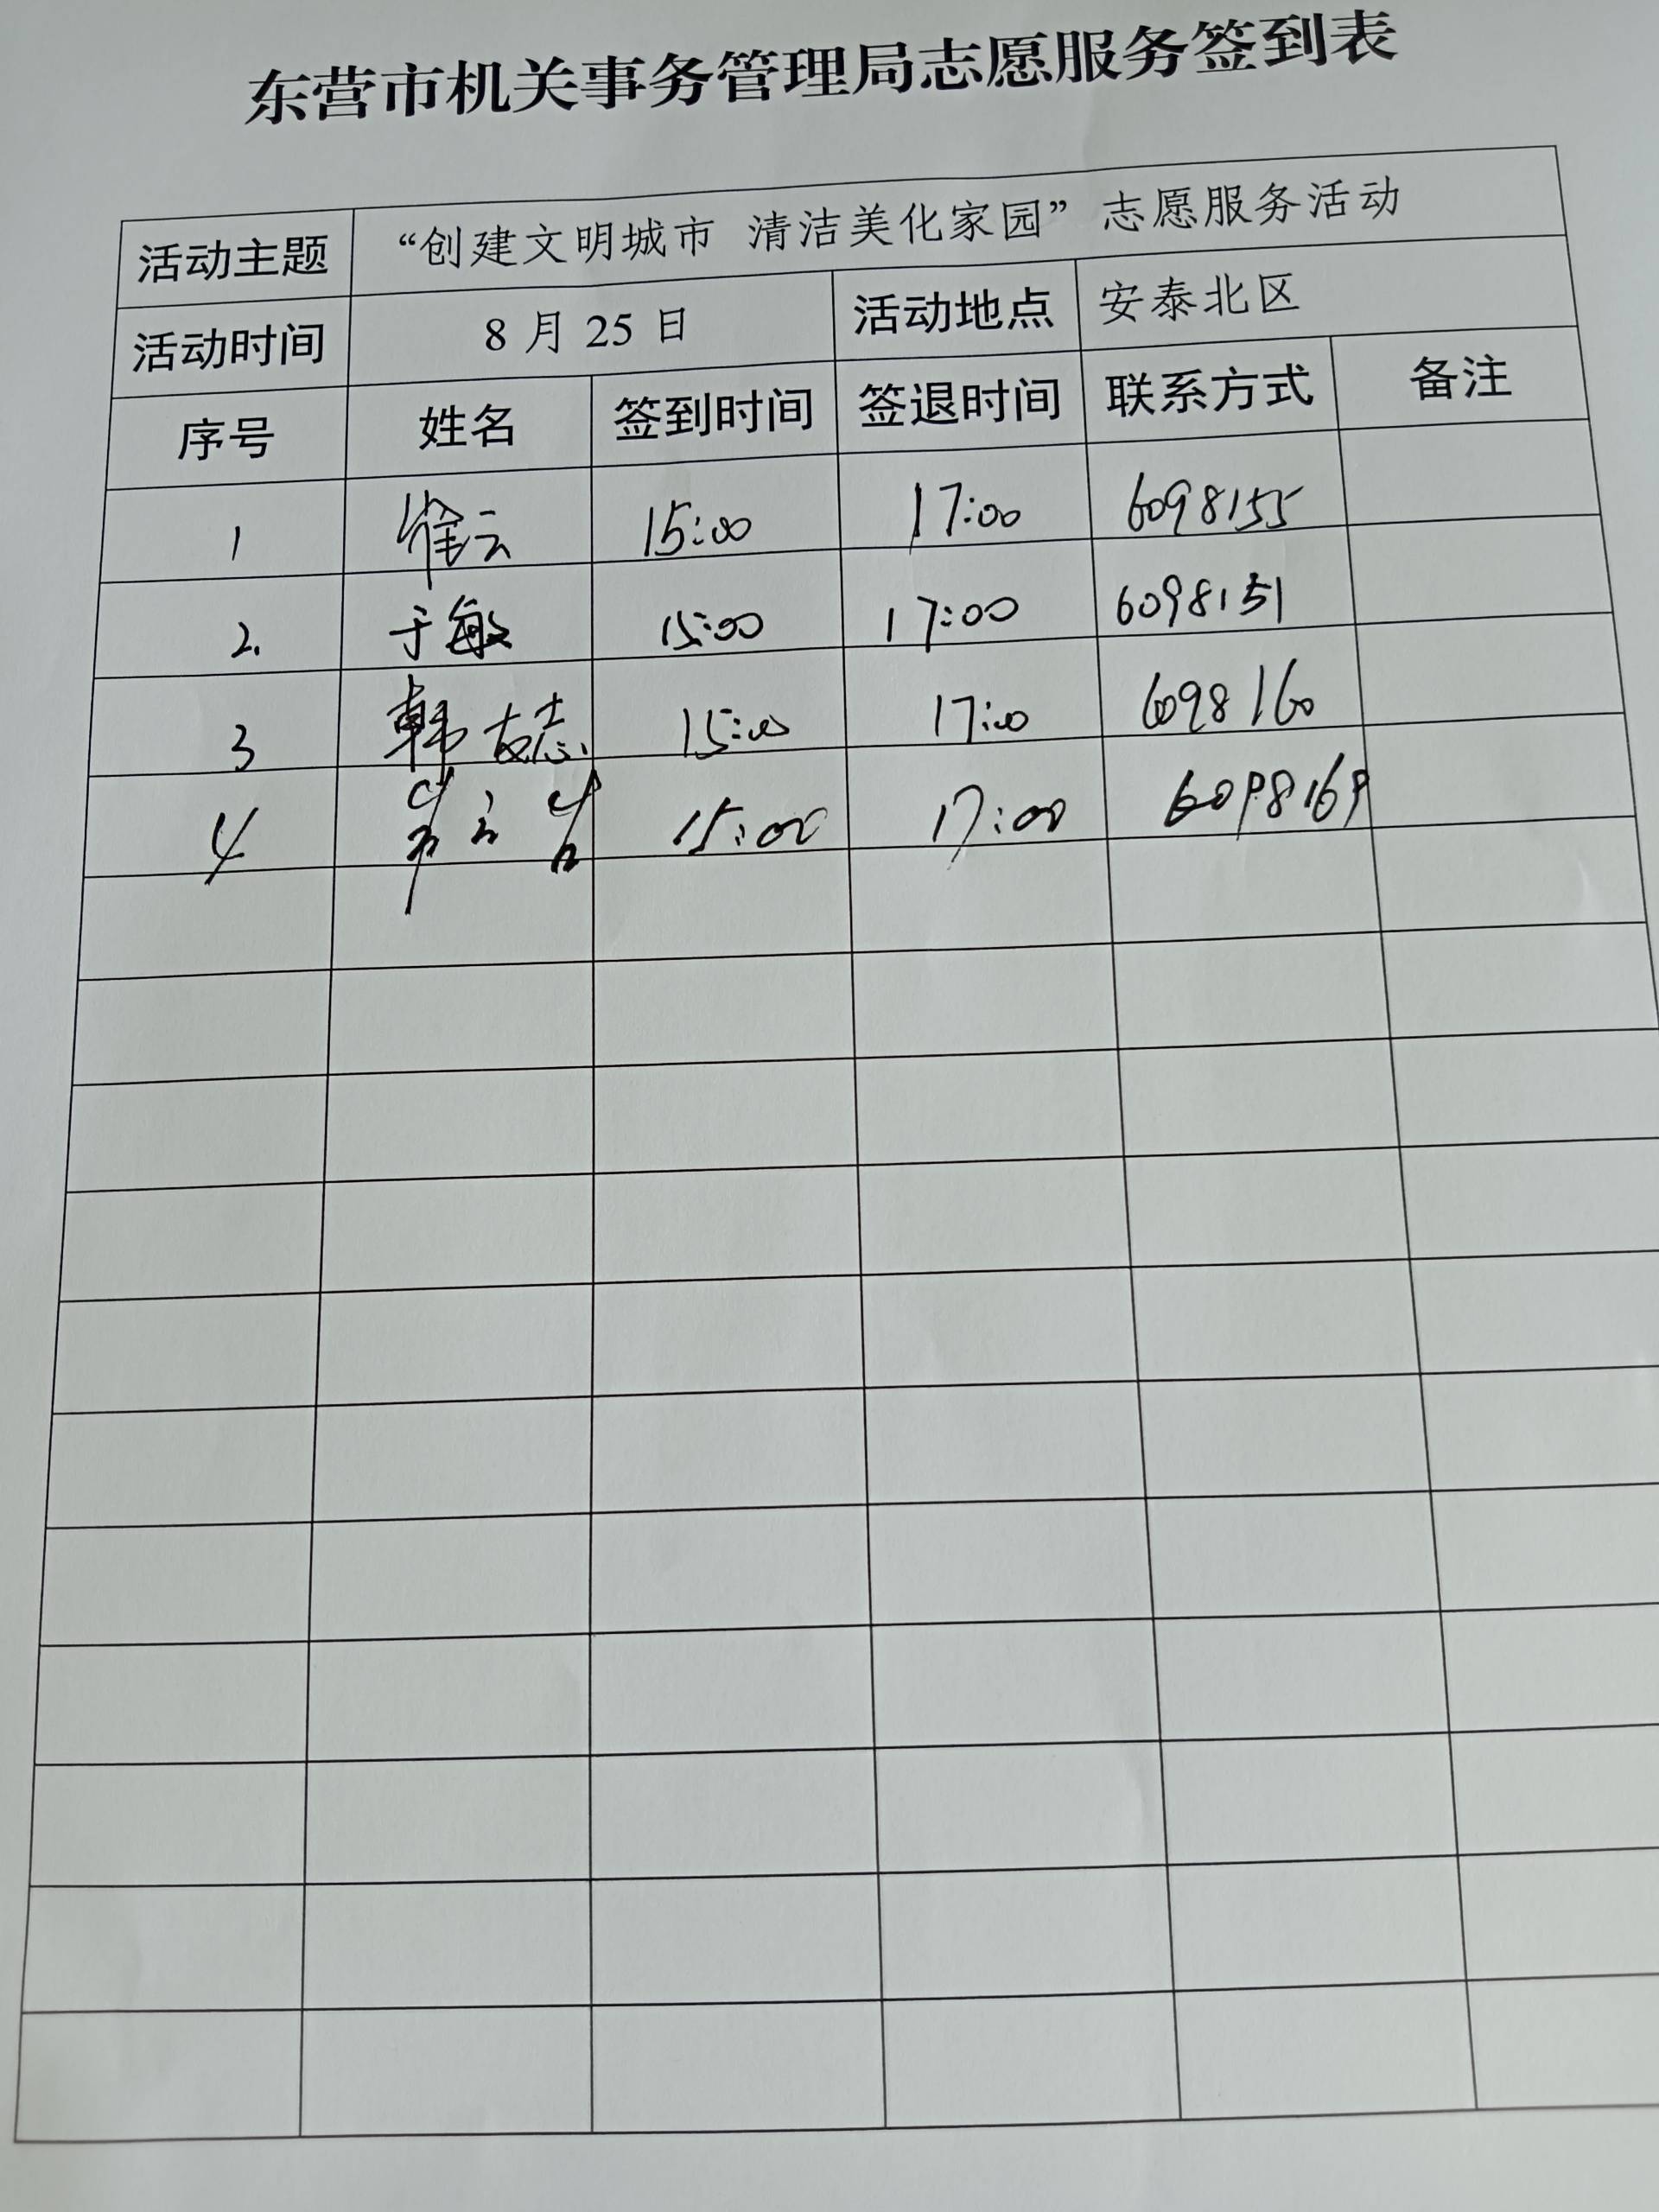 东营市机关事务管理局志愿服务签到表
活动主题 “创建文明城市 清洁美化家园”志愿服务活动
活动时间 8月25日 活动地点 安泰北区
序号 姓名 签到时间 签退时间 联系方式 备注
1 徐云 15:00 17:00 6098155
2. 于敏 15:00 17:00 6098151
3 韩友志 15:00 17:00 6098160
4 15:00 17:00 6098169